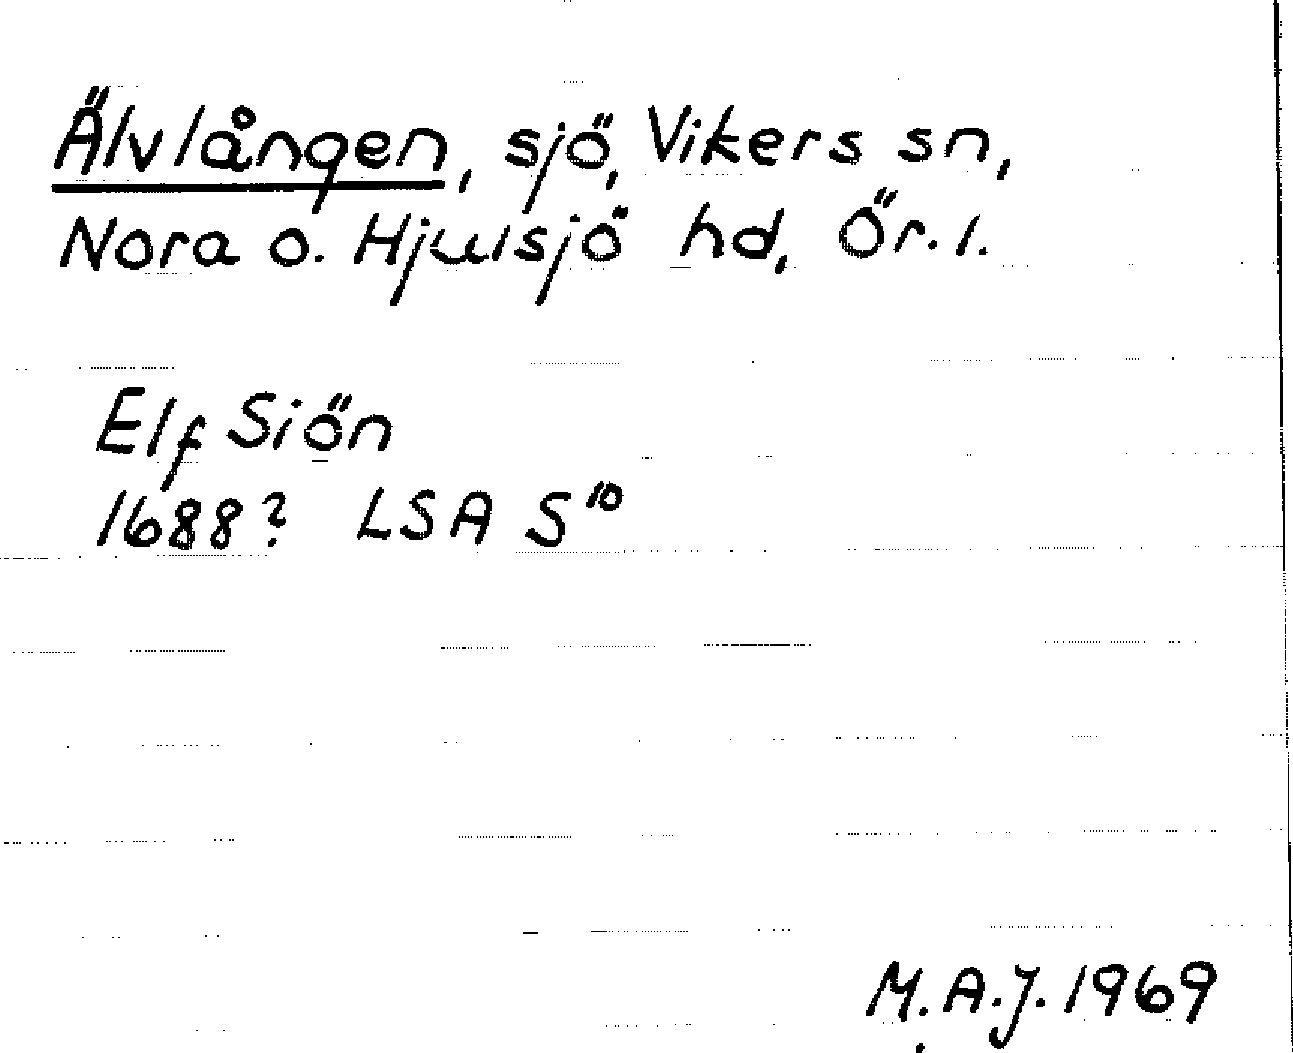 Älvlången, sjö, Vikers sn,
Nora o. Hjulsjö hd, Ör. l.
Elf Siön
1688? LSA S¹⁰
M.A.J. 1969